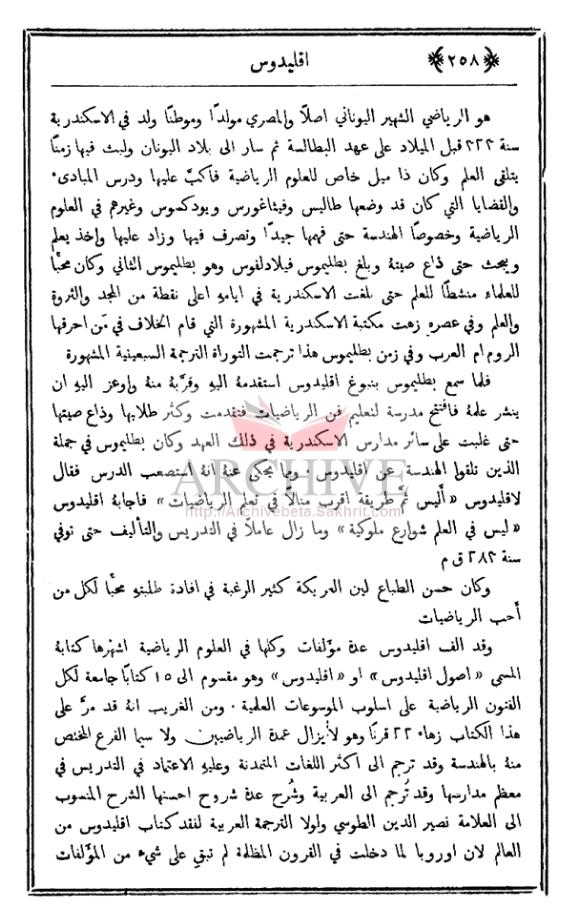 ﴿٢٥٨﴾ اقليدوس
هو الرياضي الشهير اليوناني اصلًا والمصري مولدًا وموطنًا ولد في الاسكندرية
سنة ٣٢٣ قبل الميلاد على عهد البطالسة ثم سار الى بلاد اليونان ولبث فيها زمنًا
يتلقى العلم وكان ذا ميل خاص للعلوم الرياضية فاكبّ عليها ودرس المبادىء
والقضايا التي كان قد وضعها طاليس وفيثاغورس ويودكسوس وغيرهم في العلوم
الرياضية وخصوصًا الهندسة حتى فهمها جيدًا وتصرف فيها وزاد عليها واخذ يعلم
ويبحث حتى ذاع صيتهُ وبلغ بطليموس فيلادلفوس وهو بطليموس الثاني وكان محبًا
للعلماء منشطًا للعلم حتى بلغت الاسكندرية في ايامهِ اعلى نقطة من المجد والثروة
والعلم وفي عصرهِ زهت مكتبة الاسكندرية المشهورة التي قام الخلاف في مَن احرقها
الروم ام العرب وفي زمن بطليموس هذا ترجمت التوراة الترجمة السبعينية المشهورة
فلما سمع بطليموس بنبوغ اقليدوس استقدمهُ اليهِ وقرّبهُ منهُ واوعز اليهِ ان
ينشر علمهُ فافتتح مدرسة لتعليم فن الرياضيات فتقدمت وكثر طلابها وذاع صيتها
حتى غلبت على سائر مدارس الاسكندرية في ذلك العهد وكان بطليموس في جملة
الذين تلقوا الهندسة عن اقليدوس. ومما يحكى عنهُ انهُ استصعب الدرس فقال
لاقليدوس «أليس ثم طريقة اقرب منالًا في تعلم الرياضيات» فاجابهُ اقليدوس
«ليس في العلم شوارع ملوكية» وما زال عاملًا في التدريس والتأليف حتى توفي
سنة ٢٨٣ ق م
وكان حسن الطباع لين العريكة كثير الرغبة في افادة طلبتهِ محبًا لكل من
أحب الرياضيات
وقد الف اقليدوس عدة مؤلفات وكلها في العلوم الرياضية اشهرها كتابهُ
المسمى «اصول اقليدوس» او «اقليدوس» وهو مقسوم الى ١٥ كتابًا جامعة لكل
الفنون الرياضية على اسلوب الموسوعات العلمية. ومن الغريب انهُ قد مرَّ على
هذا الكتاب زهاء ٢٢ قرنًا وهو لا يزال عمدة الرياضيين ولا سيما الفرع المختص
منهُ بالهندسة وقد ترجم الى اكثر اللغات المتمدنة وعليهِ الاعتماد في التدريس في
معظم مدارسها وقد تُرجم الى العربية وشُرح عدة شروح احسنها الشرح المنسوب
الى العلامة نصير الدين الطوسي ولولا الترجمة العربية لفقد كتاب اقليدوس من
العالم لان اوروبا لما دخلت في القرون المظلمة لم تبقِ على شيء من المؤلفات
ARCHIVE
http://Archivebeta.Sakhrit.com